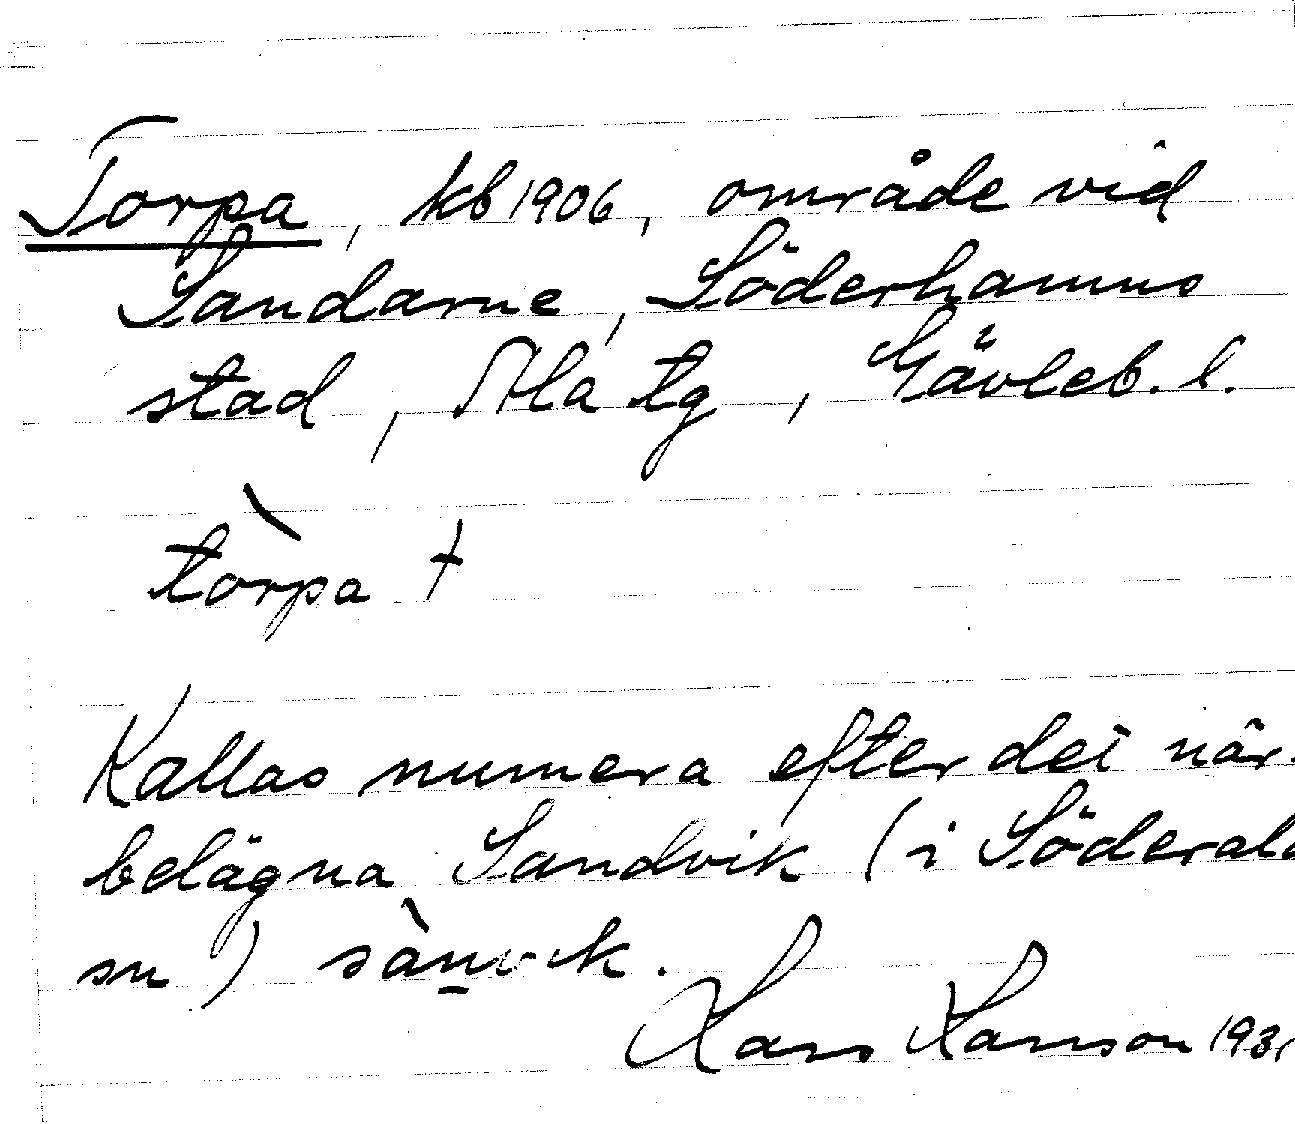 Torpa, kb 1906, område vid
Sandarne, Söderhamns
stad, Ala tg, Gävleb. l.
tòrpa †
Kallas numera efter det när-
belägna Sandvik (i Söderala
sn) sàn̲vik.
Lars Larsson 193